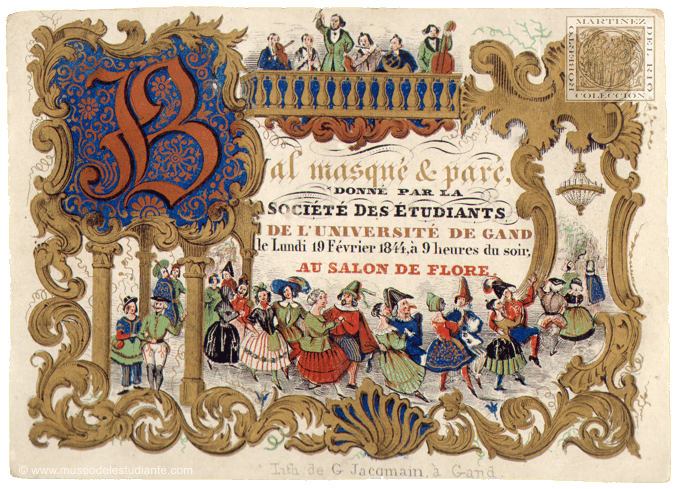 Bal masqué & paré,
DONNÉ PAR LA
SOCIÉTÉ DES ÉTUDIANTS
DE L'UNIVERSITÉ DE GAND
le Lundi 19 Février 1844, à 9 heures du soir,
AU SALON DE FLORE
Lith. de G. Jacqmain, à Gand.
ROBERTO MARTINEZ DEL RIO
COLECCION
© www.museodelestudiante.com